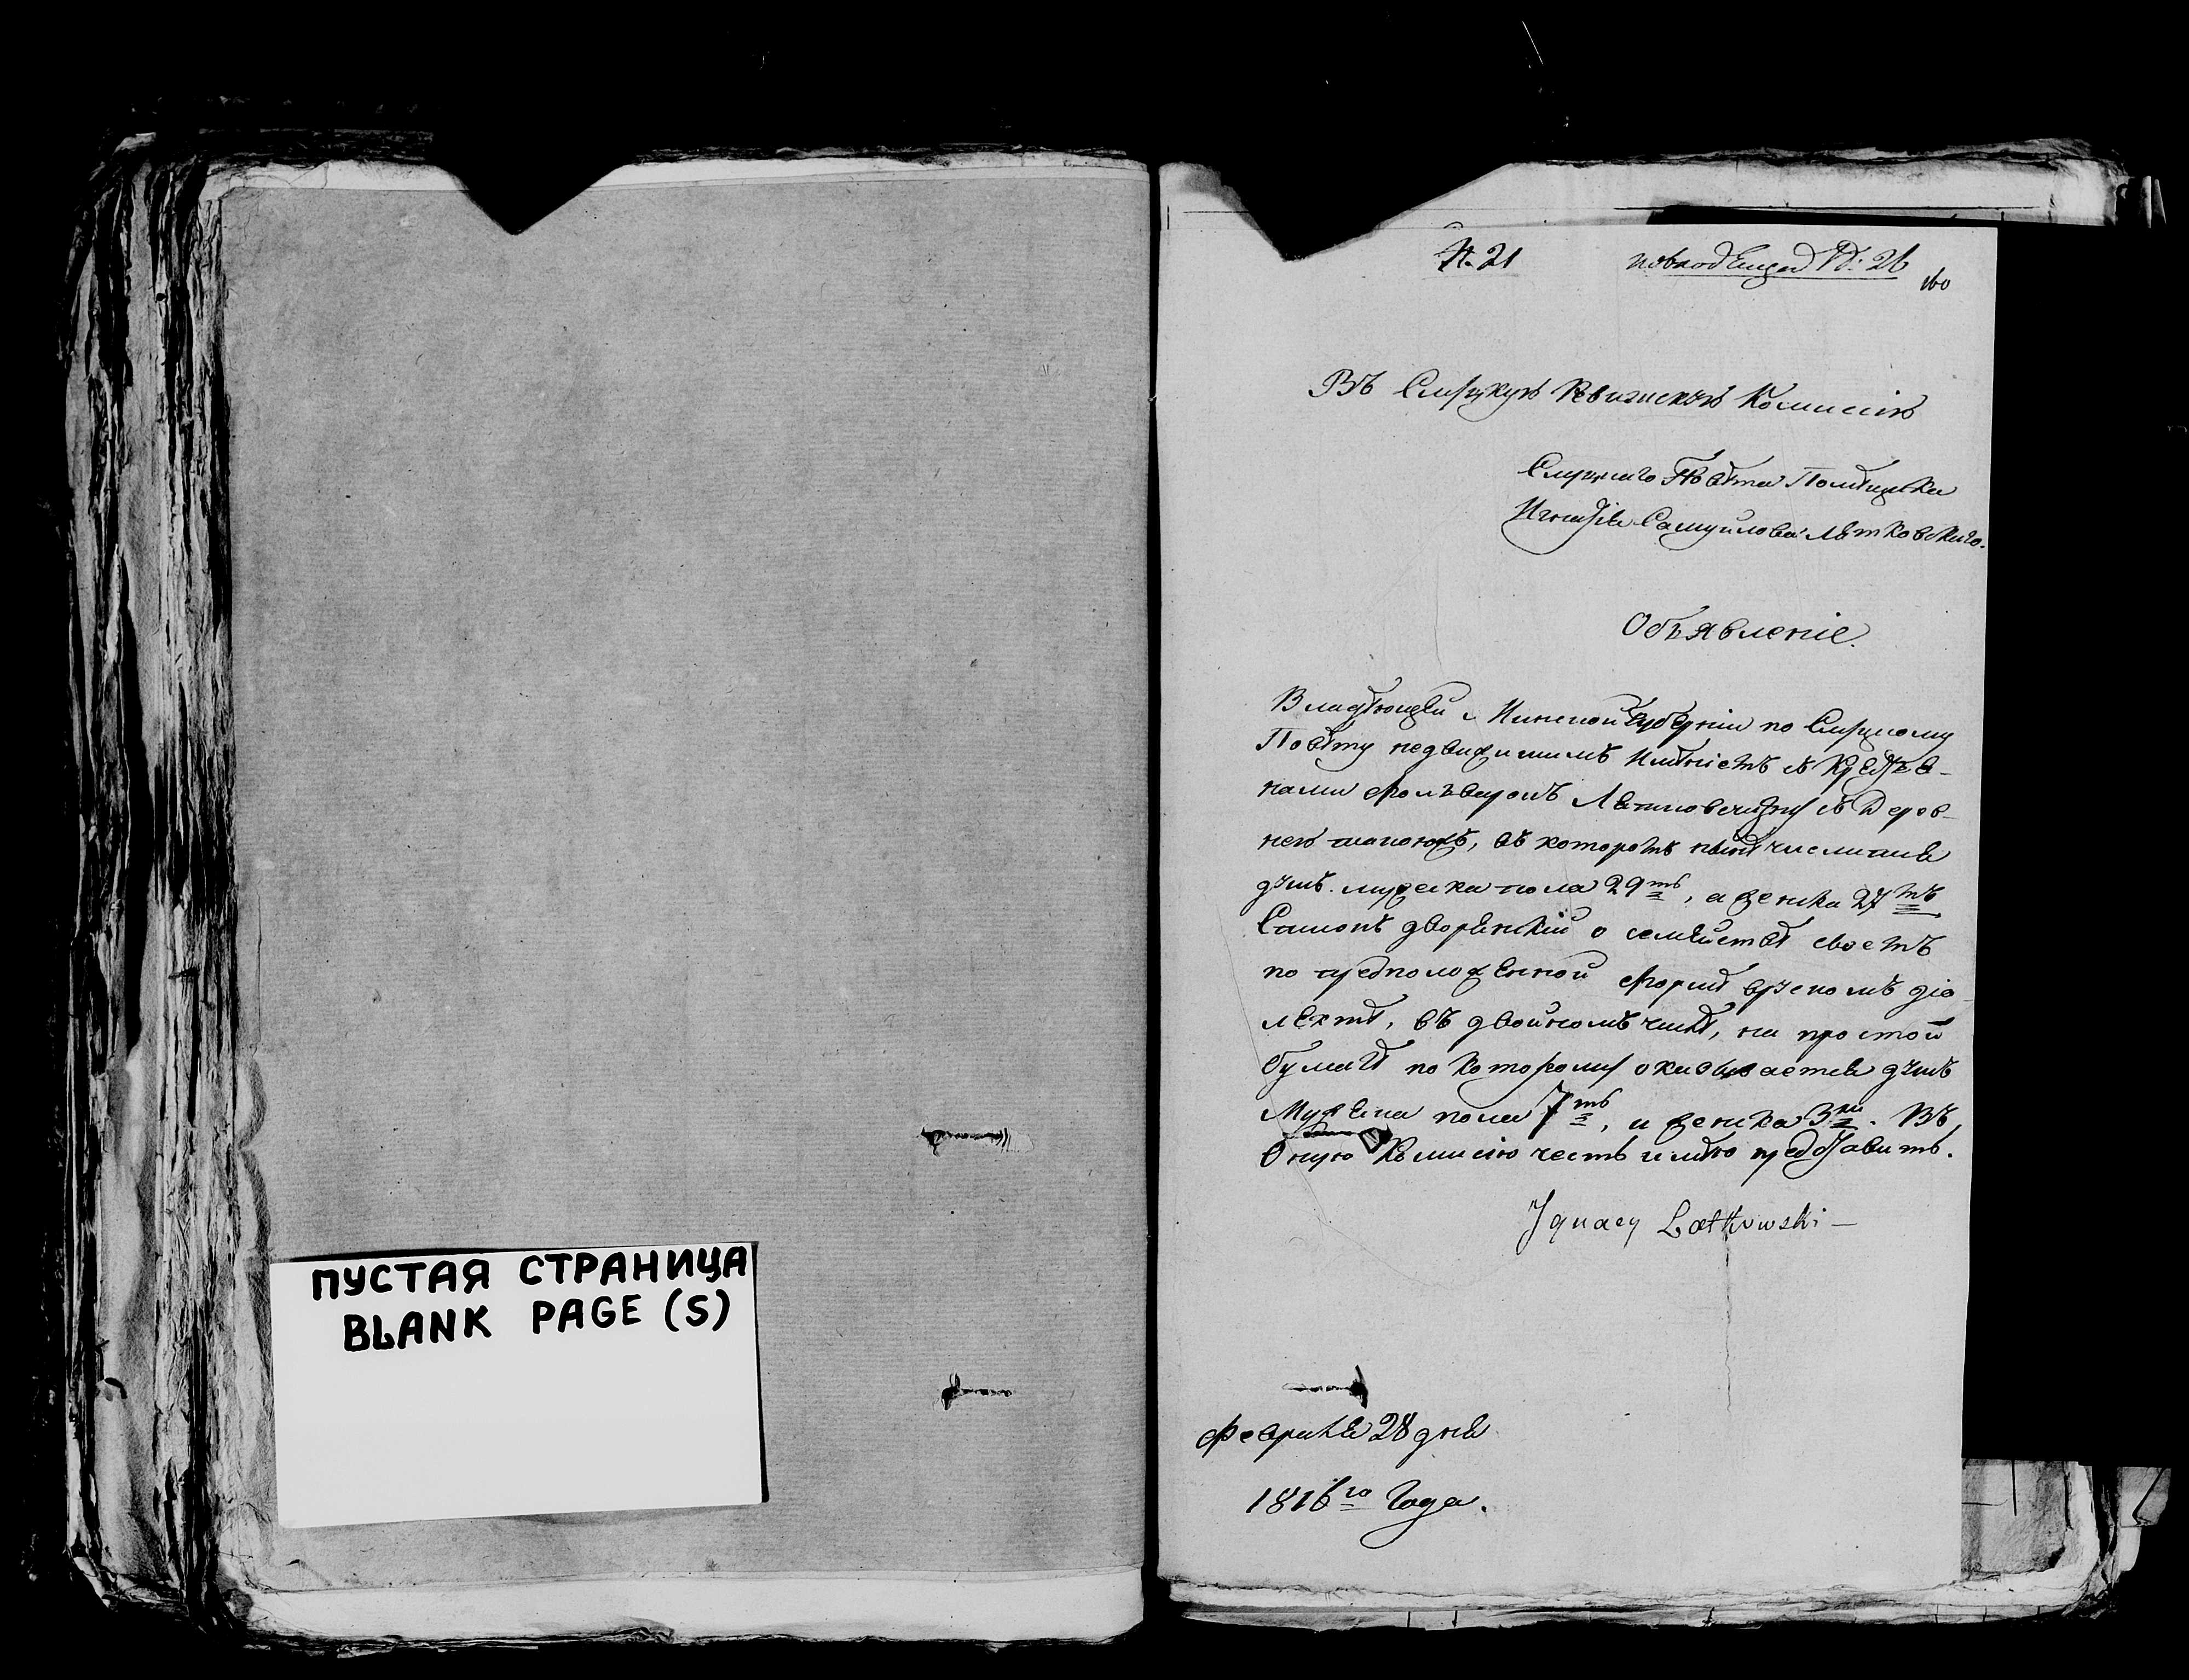 ПУСТАЯ СТРАНИЦА
BLANK PAGE (S)
№ 21
№: 26
160
Въ Слуцкую Ревизскую Комиссiю
Слуцкаго Повѣта Помѣщика
Игнатiя Самуилова Лятковскаго.
Объявленiе.
Владѣющей Минской Губернiи по Слуцкому
Повѣту недвижимымъ имѣнiемъ
фольваркомъ съ Дерев-
нею, въ которомъ числится
душъ мужеска пола 29ть, а женска 27мъ
дворянскiй о семействѣ своемъ
по предположенной формѣ рускомъ дiа-
лектѣ, въ двойномъ числѣ, на простой
бумагѣ по которому оказывается душъ
Мужеска пола 7мь, и женска 3ри. Въ
Оную Комисiю честь имѣю представить.
Jgnacy Łatkowski —
февраля 28 дня
1816го Года.